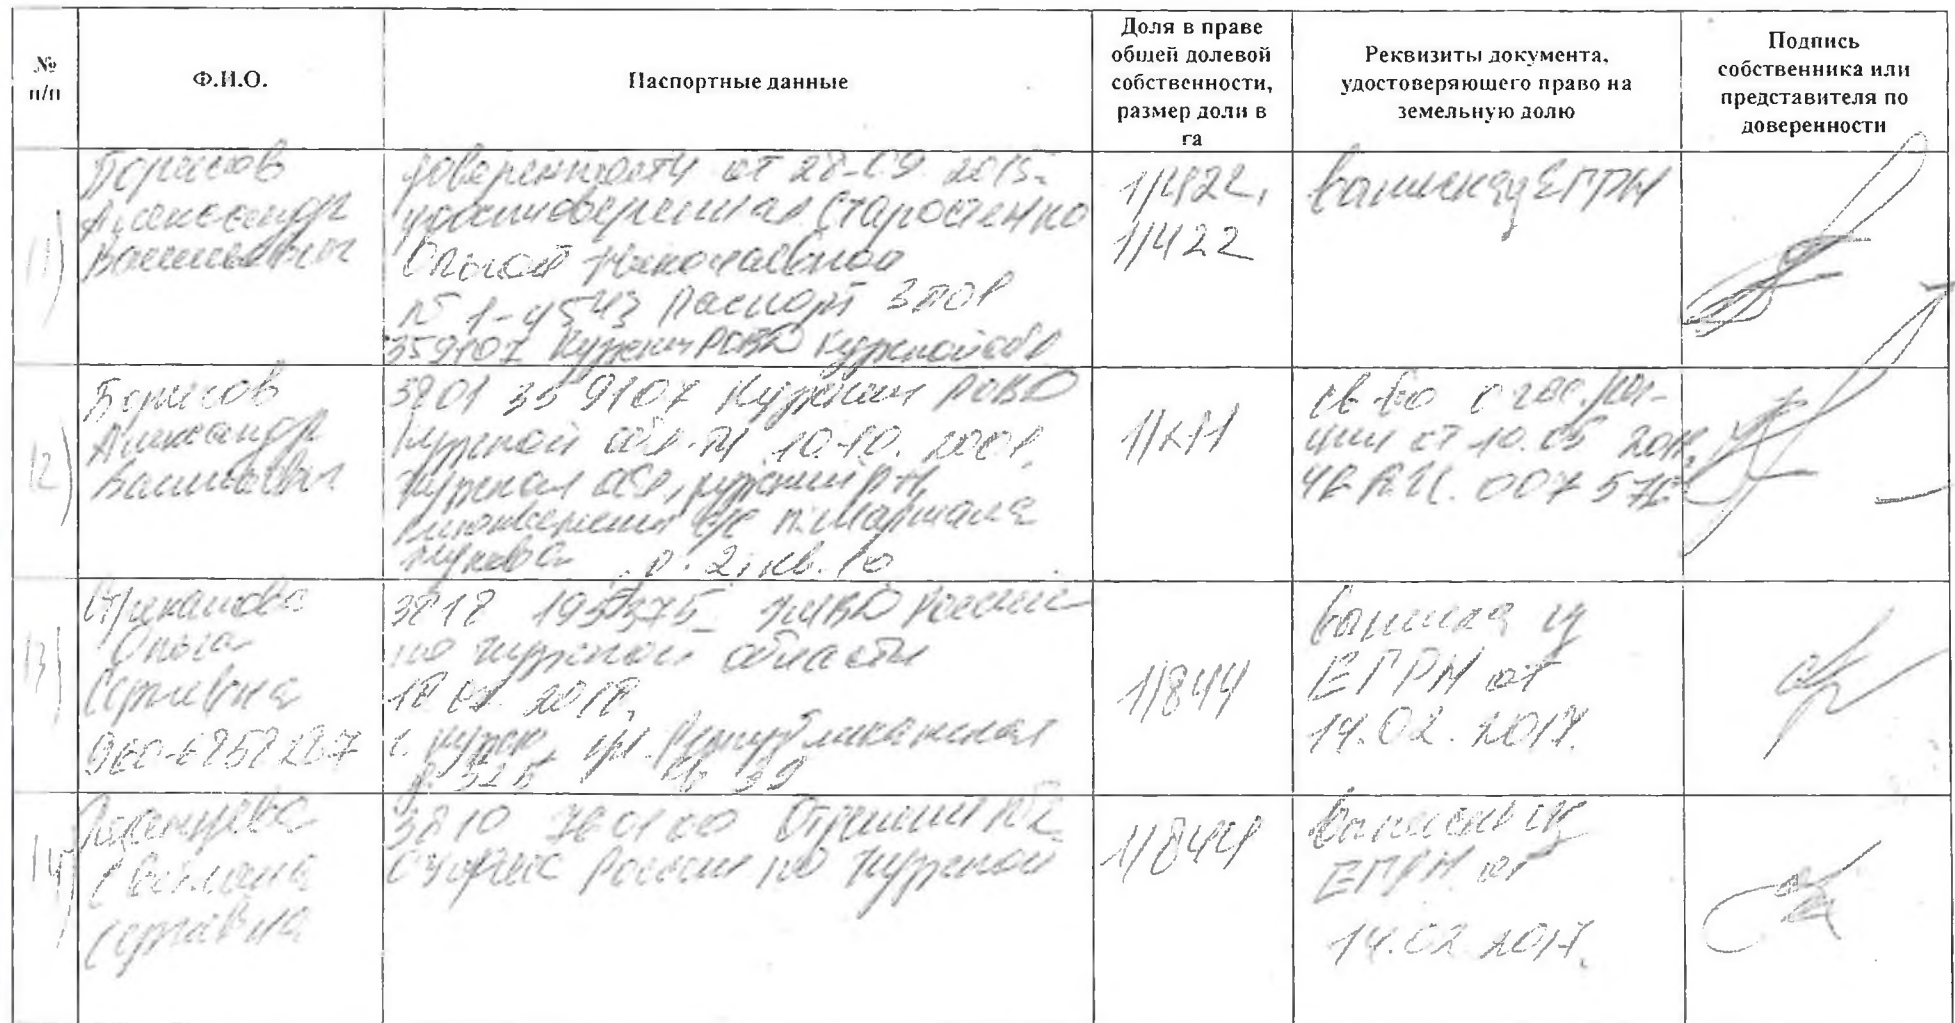 №
п/п
Ф.И.О.
Паспортные данные
Доля в праве
общей долевой
собственности,
размер доли в
га
Реквизиты документа,
удостоверяющего право на
земельную долю
Подпись
собственника или
представителя по
доверенности
11)
Борисов
Александр
Васильевич
доверенности от 28.09.2015г.
удостоверенная Старостенко
Ольгой Николаевной
№ 1-4543 паспорт 3801
359107 Курским РОВД Курской обл
1/422,
1/422
выписка из ЕГРН
12)
Борисов
Александр
Васильевич
3801 359107 Курским РОВД
Курской обл-ти 10.10.2001.
Курская обл, Курский р-н,
с/с п. Маршала
Жукова д. 2, кв. 10
1/211
св-во о гос. рег-
ции от 10.05 2011,
007576
13)
Ольга
Сергеевна
3818 195375 УМВД России
по Курской области
2018,
г. Курск, ул. Республиканская
1/844
выписка из
ЕГРН от
14.02.2017.
14)
Светлана
Сергеевна
3810 760100 Отделением №2
ОУФМС России по Курской
1/844
выписка из
ЕГРН от
14.02.2017.